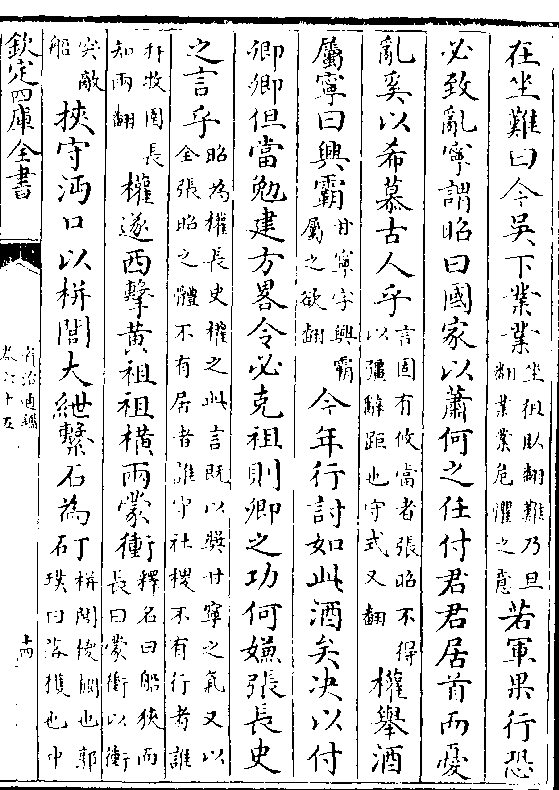 在坐難曰今吳下業業坐徂臥翻難乃旦翻業業危懼之意若軍果行恐
必致亂寧謂昭曰國家以蕭何之任付君君居首而憂
亂奚以希慕古人乎言固有攸當者張昭不得以彊辭距也守式又翻權舉酒
屬寧曰興霸甘寧字興霸屬之欲翻今年行討如此酒矣决以付
卿卿但當勉建方畧令必克祖則卿之功何嫌張長史
之言乎昭為權長史權之此言既以奬甘寧之氣又以全張昭之體不有居者誰守社稷不有行者誰
扞牧圉長知兩翻權遂西擊黄祖祖橫兩蒙衝釋名曰船狹而長曰蒙衝以衝
突敵船挾守沔口以栟閭大紲繫石為矴栟閭椶櫚也郭璞曰落穫也中
欽定四庫全書
資治通鑑
卷六十五
十四